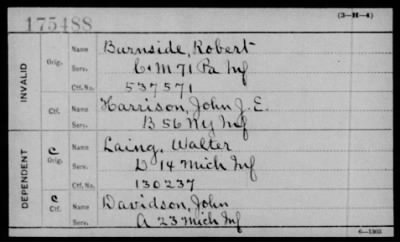 175488
(3-H-4)
INVALID
Orig. Name Burnside, Robert
Serv. C & M 71 Pa Inf
Ctf. No. 537571
Ctf. Name Harrison, John J. E.
Serv. B 56 Ny Inf
DEPENDENT
C Orig. Name Laing, Walter
Serv. D 14 Mich Inf
Ctf. No. 130237
C Ctf. Name Davidson, John
Serv. A 23 Mich Inf